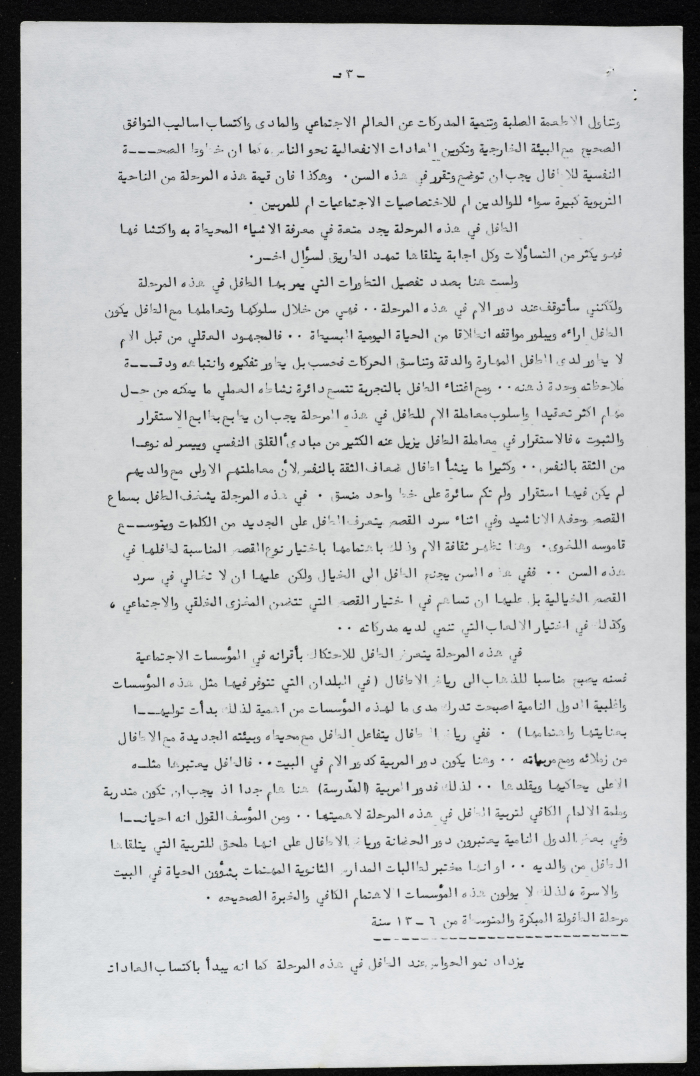 - ٣ -
وتناول الاطعمة الصلبة وتنمية المدركات عن العالم الاجتماعي والمادى واكتساب اساليب التوافق
الصحيح مع البيئة الخارجية وتكوين العادات الانفعالية نحو الناس، كما ان خطوط الصحـــة
النفسية للاطفال يجب ان توضع وتقرر في هذه السن . وهكذا فان قيمة هذه المرحلة من الناحية
التربوية كبيرة سواء للوالدين ام للاختصاصيات الاجتماعيات ام للمربين .
الطفل في هذه المرحلة يجد متعة في معرفة الاشياء المحيطة به واكتشافها
فهو يكثر من التساؤلات وكل اجابة يتلقاها تمهد الطريق لسؤال اخـر.
ولست هنا بصدد تفصيل التطورات التي يمر بها الطفل في هذه المرحلة
ولكنني سأتوقف عند دور الام في هذه المرحلة .. فهي من خلال سلوكها وتعاملها مع الطفل يكون
الطفل اراءه ويبلور مواقفه انطلاقا من الحياة اليومية البسيطة .. فالمجهود العقلي من قبل الام
لا يطور لدى الطفل المهارة والدقة وتناسق الحركات فحسب بل يطور تفكيره وانتباهه ودقـــة
ملاحظاته وحدة ذهنه .. ومع اغتناء الطفل بالتجربة تتسع دائرة نشاطه العملي ما يمكنه من حـل
مهام اكثر تعقيدا واسلوب معاملة الام للطفل في هذه المرحلة يجب ان يطابع بطابع الاستقرار
والثبوت ، فالاستقرار في معاملة الطفل يزيل عنه الكثير من مبادىء القلق النفسي وييسر له نوعا
من الثقة بالنفس .. وكثيرا ما ينشأ اطفال ضعاف الثقة بالنفس لأن معاملتهم الاولى مع والديهم
لم يكن فيها استقرار ولم تكن سائرة على خط واحد منسق . في هذه المرحلة يشغف الطفل بسماع
القصص وحفظ الاناشيد وفي اثناء سرد القصص يتعرف الطفل على الجديد من الكلمات ويتوســـع
قاموسه اللغوى. وهنا تظهر ثقافة الام وذلك باهتمامها باختيار نوع القصص المناسبة لطفلها في
هذه السن .. ففي هذه السن يجنح الطفل الى الخيال ولكن عليها ان لا تغالي في سرد
القصص الخيالية بل عليها ان تساهم في اختيار القصص التي تتضمن المغزى الخلقي والاجتماعي ،
وكذلك في اختيار الالعاب التي تنمي لديه مدركاته ..
في هذه المرحلة يتعرض الطفل للاحتكاك بأقرانه في المؤسسات الاجتماعية
فسنه يصبح مناسبا للذهاب الى رياض الاطفال ( في البلدان التي تتوفر فيها مثل هذه المؤسسات
واغلبية الدول النامية اصبحت تدرك مدى ما لهذه المؤسسات من اهمية لذلك بدأت توليهــا
بعنايتها واهتمامها ) . ففي رياض الاطفال يتفاعل الطفل مع محيطه وبيئته الجديدة مع الاطفال
من زملائه ومع مربياته .. وهنا يكون دور المربية كدور الام في البيت .. فالطفل يعتبرها مثلـه
الاعلى يحاكيها ويقلدها .. لذلك فدور المربية (المدرسة) هنا هام جدا اذ يجب ان تكون متدربة
وملمة الالمام الكافي لتربية الطفل في هذه المرحلة لاهميتها .. ومن المؤسف القول انه احيانــا
وفي بعض الدول النامية يعتبرون دور الحضانة ورياض الاطفال على انها ملحق للتربية التي يتلقاها
الطفل من والديه .. او انها مختبر لطالبات المدارس الثانوية المهتمات بشؤون الحياة في البيت
والاسرة ، لذلك لا يولون هذه المؤسسات الاهتمام الكافي والخبرة الصحيحه .
مرحلة الطفولة المبكرة والمتوسطة من ٦ - ١٣ سنة
يزداد نمو الحواس عند الطفل في هذه المرحلة كما انه يبدأ باكتساب العادات